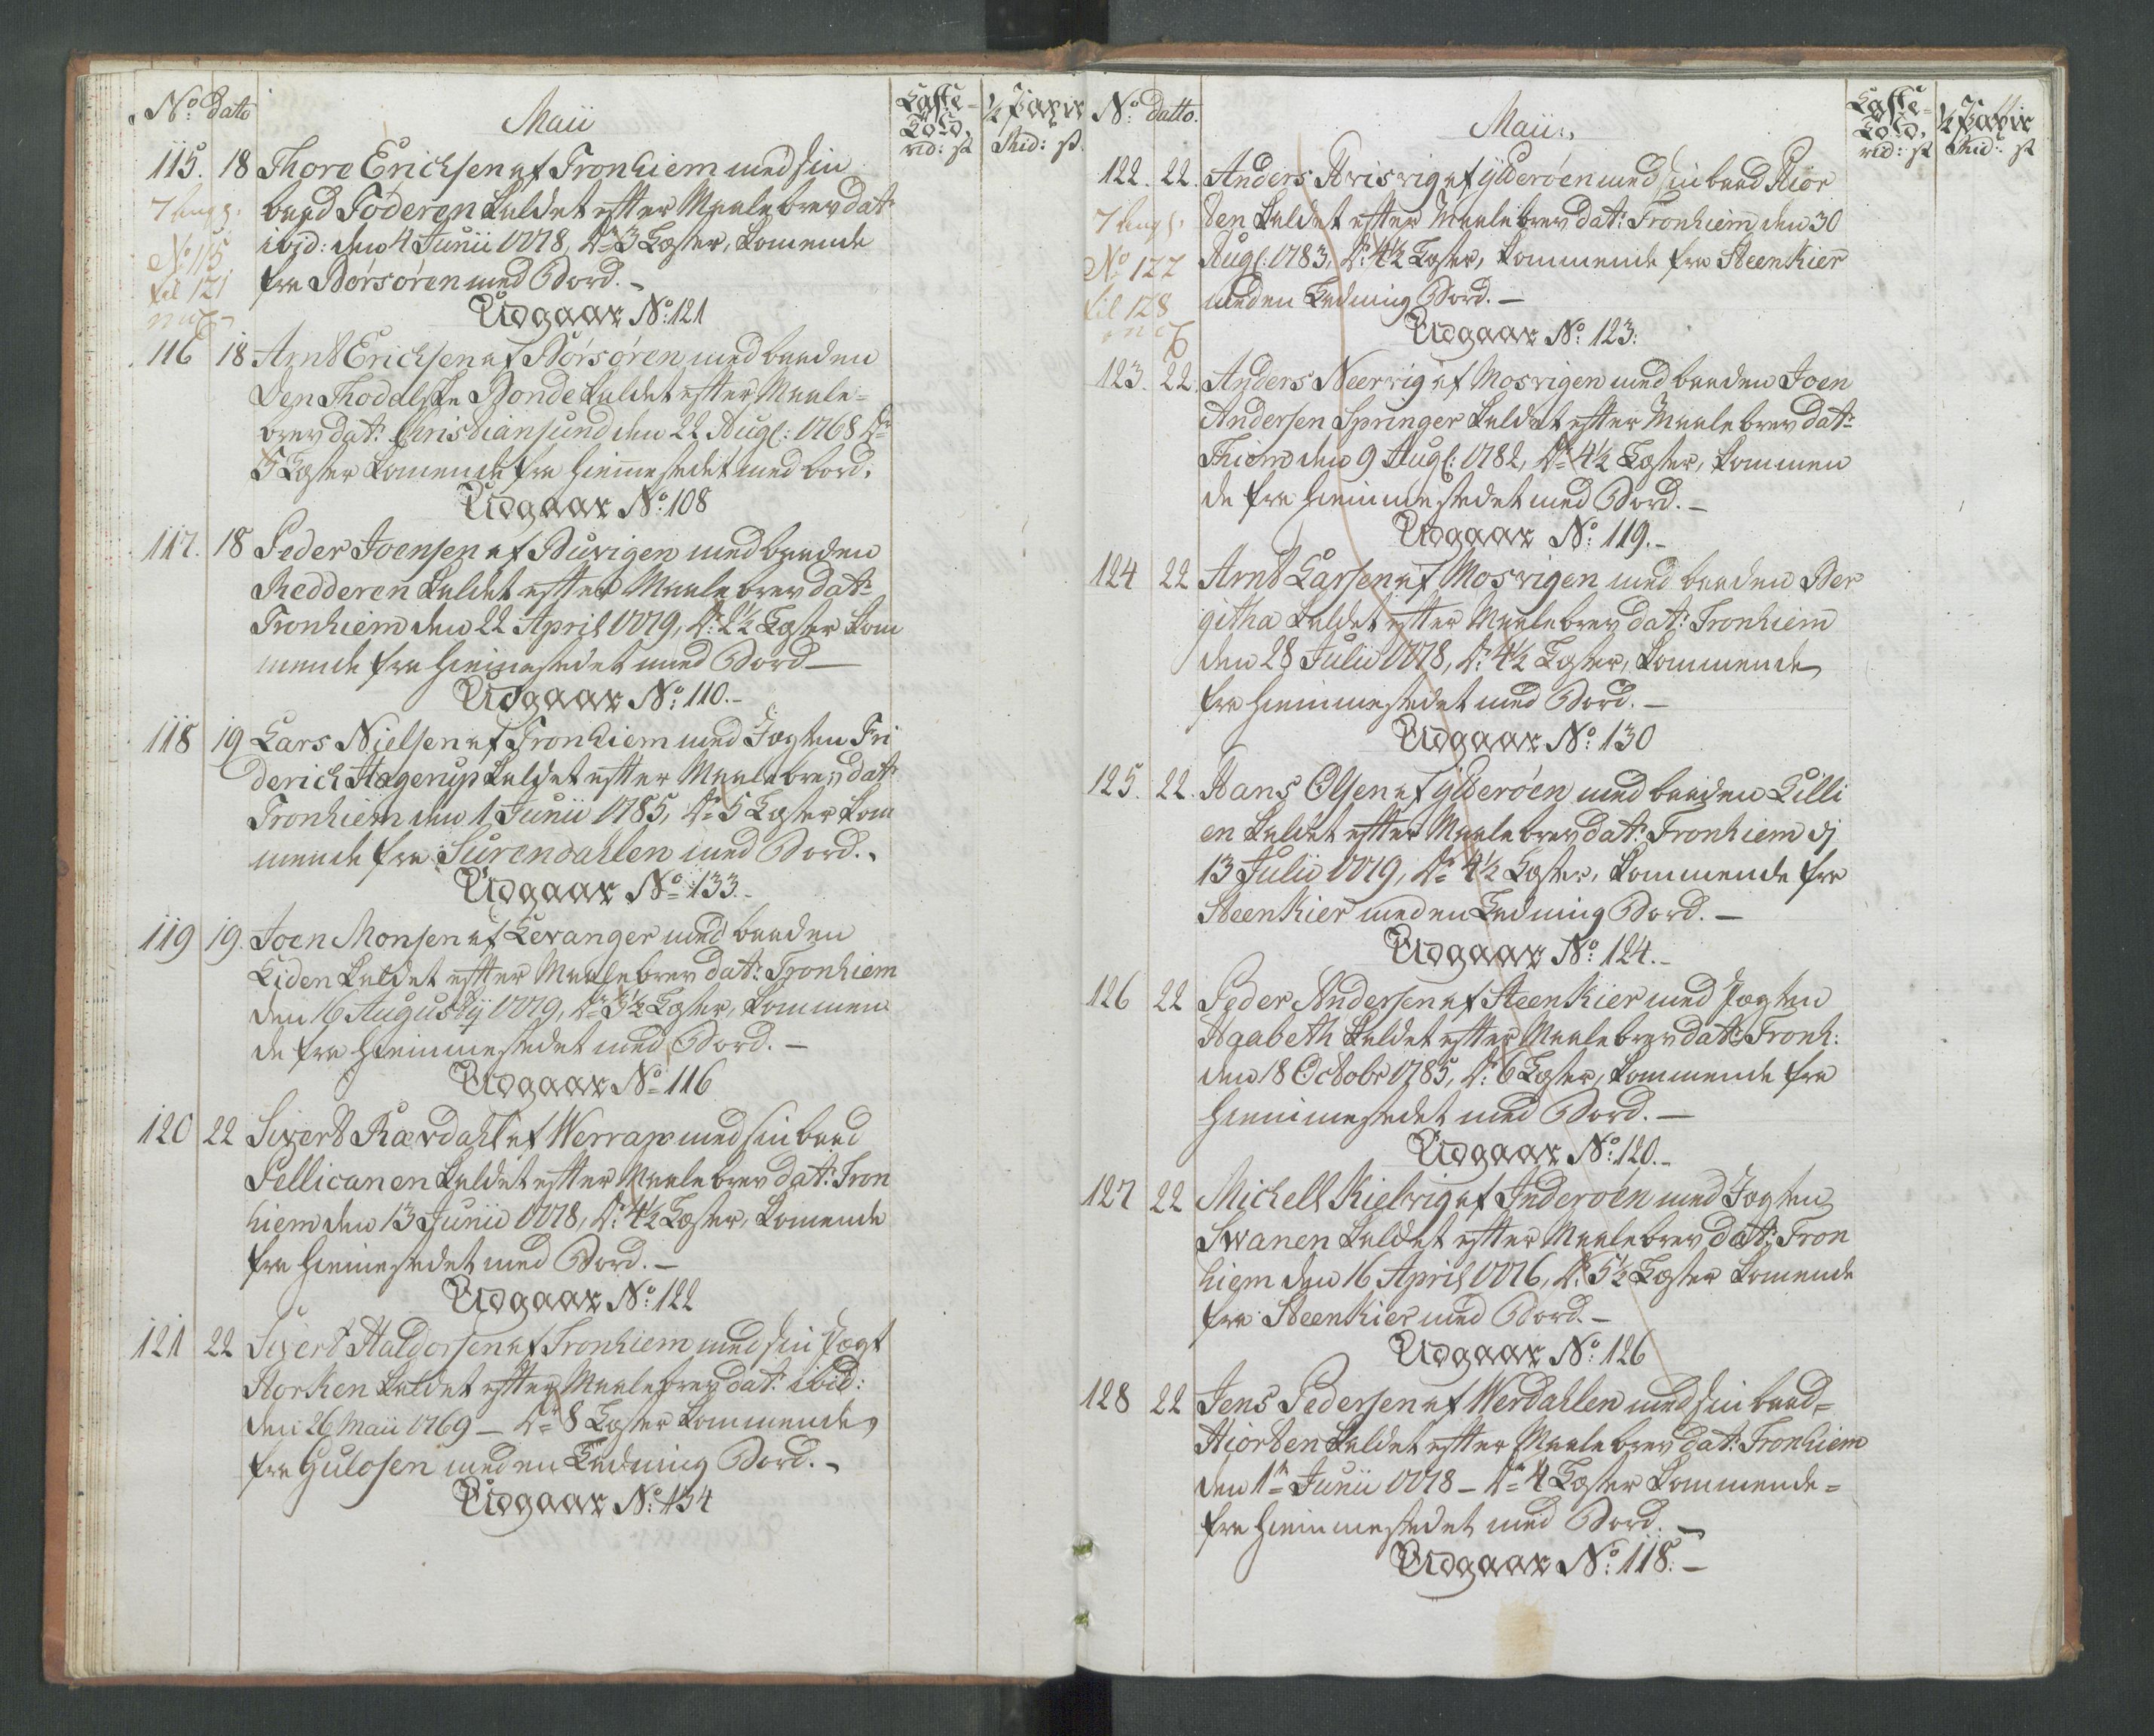 No: datto
Maii
Laste-
Told,
rd: s
½ Papir
Rd: s.
115. 18 Thore Erichsen af Tronhiem med sin
baad Föderen kaldet efter Maalebrev dat:
ibid: den 4 Junii 1778, Dr: 3 Læster, komende
fra Börsören med Bord. -
Udgaar No: 121
No 115
til 121
116 18 Arnt Erichsen af Börsören med baaden
Den Bonde kaldet efter Maale-
brev dat: Christiansund den 22 Augs: 1768 Dr:
5 Læster komende fra Hiemestedet med bord.
Udgaar No: 108
117. 18 Peder Joensen af Buvigen med baaden
Redderen kaldet efter Maalebrev dat:
Tronhiem den 22 April 1779, Dr: 2½ Læster kom
mende fra Hiemestedet med Bord -
Udgaar No: 110. -
118 19 Lars Nielsen af Tronhiem med Jagten Fri
derich Hagerup kaldet efter Maalebrev dat:
Tronhiem den 1 Junii 1785, Dr: 5 Læster kom
mende fra Surendahlen med Bord. -
Udgaar No: 133. -
119 19. Joen Monsen af Levanger med baaden
Liden kaldet efter Maalebrev dat: Tronhiem
den 16 Augustij 1779, Dr: 3½ Læster, kommen
de fra Hiemmestedet med Bord. -
Udgaar No: 116
120 22 Sivert Rævdahl af Werran med sin baad
Pellicanen kaldet efter Maalebrev dat: Tron
hiem den 13 Junii 1778, Dr: 4½ Læster, komende
fra Hiemestedet med Bord. -
Udgaar No: 122
121 22 Sivert Haldorsen af Tronhiem med sin Jagt
Storken kaldet efter Maalebrev dat: ibid:
den 26 Maii 1769 - Dr: 8 Læster kommende
fra Gulosen med en Ladning Bord. -
Udgaar No: 134
No: datto.
Maii
Laste-
Told,
rd: s
½ Papir
Rd: s
122. 22. Anders Hvisvig af Ytterøen med sin baad Hior
ten kaldet efter Maalebrev dat: Tronhiem den 30
Augs: 1783, Dr: 4½ Læster, kommende fra Steenkier
med en Ladning Bord. -
Udgaar No: 123:
No 122
til 128
123. 22. Anders Neervig af Mosvigen med baaden Joen
Andersen Springer kaldet efter Maalebrev dat:
Thiem den 9 Augs: 1782, Dr: 4½ Læster, kommen
de fra Hiemmestedet med Bord. -
Udgaar No: 119. -
124 22 Arnt Larsen af Mosvigen med baaden Ber
githa kaldet efter Maalebrev dat: Tronhiem
den 28 Julii 1778, Dr: 4½ Læster, kommende
fra Hiemmestedet med Bord. -
Udgaar No: 130
125. 22. Hans Olsen af Ytterøen med baaden Lilli
en kaldet efter Maalebrev dat: Tronhiem d:
13 Julii 1779, Dr: 4½ Læster, kommende fra
Steenkier med en Ladning Bord. -
Udgaar No: 124. -
126 22 Peder Andersen af Steenkier med Jagten
Haabeth kaldet efter Maalebrev dat: Tronh:
den 18 Octobr 1785, Dr: 6 Læster, kommende fra
Hiemmestedet med Bord. -
Udgaar No: 120. -
127 22 Michell Kielvig af Inderøen med Jagten
Swanen kaldet efter Maalebrev dat: Tron
hiem den 16 April 1776, Dr: 5½ Læster komende
fra Steenkier med Bord. -
Udgaar No: 126
128 22 Jens Pedersen af Werdahlen med sin baad-
Hiorten kaldet efter Maalebrev dat: Tronhiem
den 1te Junii 1778 - Dr: 4 Læster kommende-
fra Hiemmestedet med Bord. -
Udgaar No: 118. -